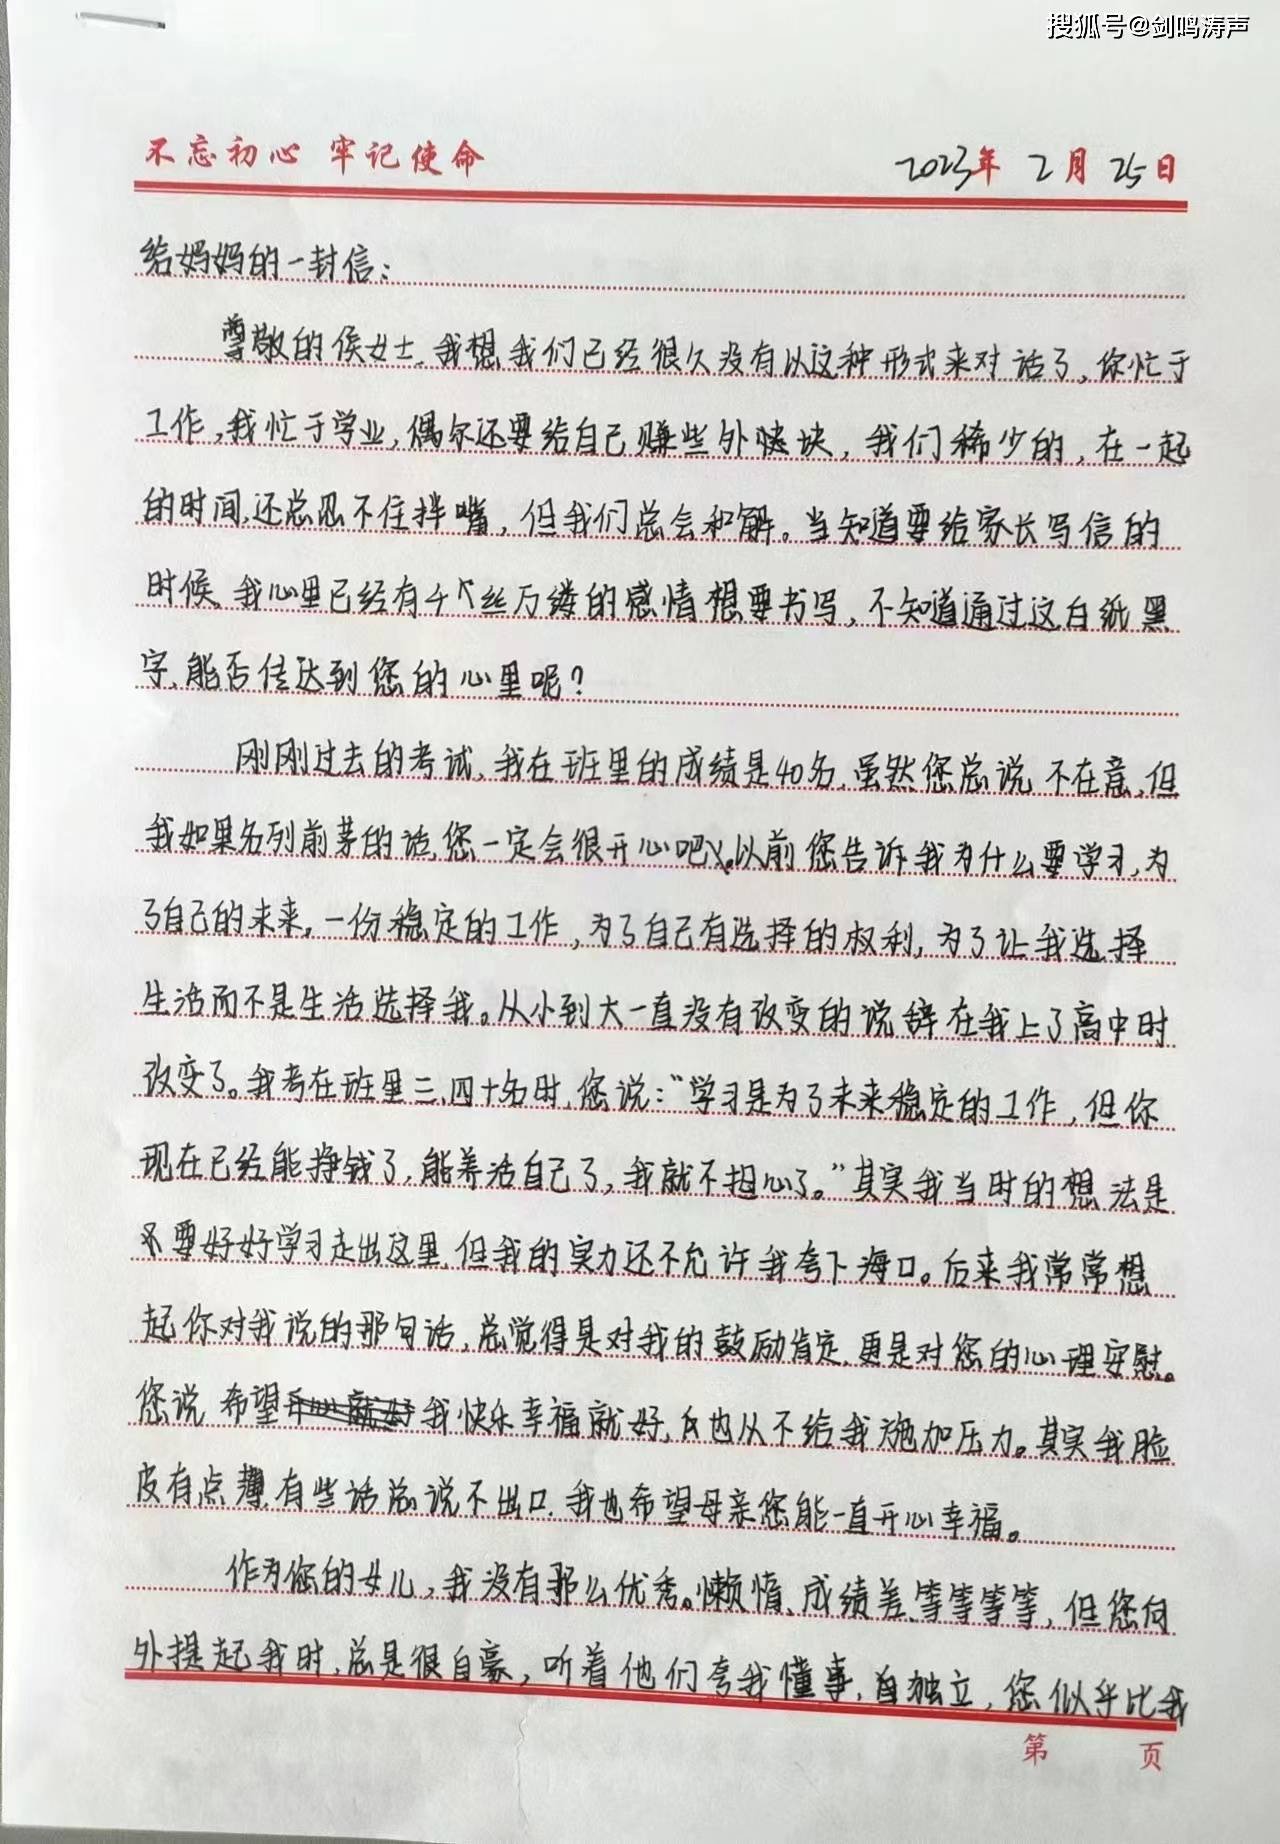 搜狐号@剑鸣涛声
不忘初心 牢记使命 2023年 2月 25日
给妈妈的一封信：
尊敬的侯女士，我想我们已经很久没有以这种形式来对话了，你忙于
工作，我忙于学业，偶尔还要给自己赚些外快块，我们稀少的，在一起
的时间，还总忍不住拌嘴，但我们总会和解。当知道要给家长写信的
时候，我心里已经有千丝万缕的感情想要书写，不知道通过这白纸黑
字，能否传达到您的心里呢？
刚刚过去的考试，我在班里的成绩是40名，虽然您总说不在意，但
我如果名列前茅的话，您一定会很开心吧。以前您告诉我为什么要学习，为
了自己的未来，一份稳定的工作，为了自己有选择的权利，为了让我选择
生活而不是生活选择我。从小到大一直没有改变的说辞在我上了高中时
改变了。我考在班里三、四十名时，您说：“学习是为了未来稳定的工作，但你
现在已经能挣钱了，能养活自己了，我就不担心了。”其实我当时的想法是
要好好学习走出这里，但我的实力还不允许我夸下海口。后来我常常想
起你对我说的那句话，总觉得是对我的鼓励肯定，更是对您的心理安慰。
您说希望我快乐幸福就好，也从不给我施加压力。其实我脸
皮有点薄，有些话总说不出口，我也希望母亲您能一直开心幸福。
作为您的女儿，我没有那么优秀。懒惰、成绩差、等等等等，但您向
外提起我时，总是很自豪，听着他们夸我懂事，自独立，您似乎比我
第 页